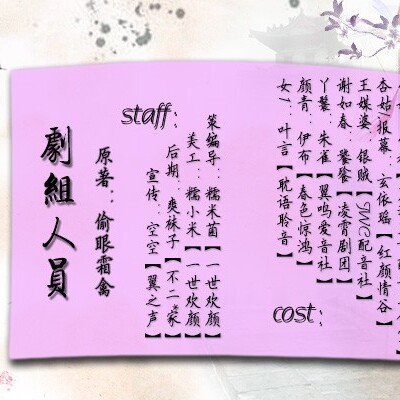 劇組人員
原著：偷眼霜禽
staff：
策编导：糯米菌【一世欢颜】
美工：糯小米【一世欢颜】
后期：爽袜子【不二家】
宣传：空空【翼之声】
cost：
杏姑报幕：玄依瑶【红颜情谷】
王媒婆：银贼【JWC配音社】
谢如春：饕餮【凌霄剧团】
丫鬟：朱雀【翼鸣爱音社】
颜青：伊布【春色惊鸿】
女1：叶言【耽语聆音】